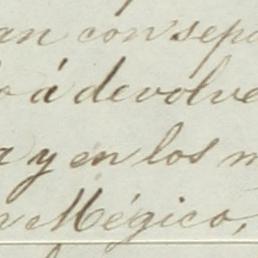 an con sepa
o á devolve
a y en los m
n Mégico,